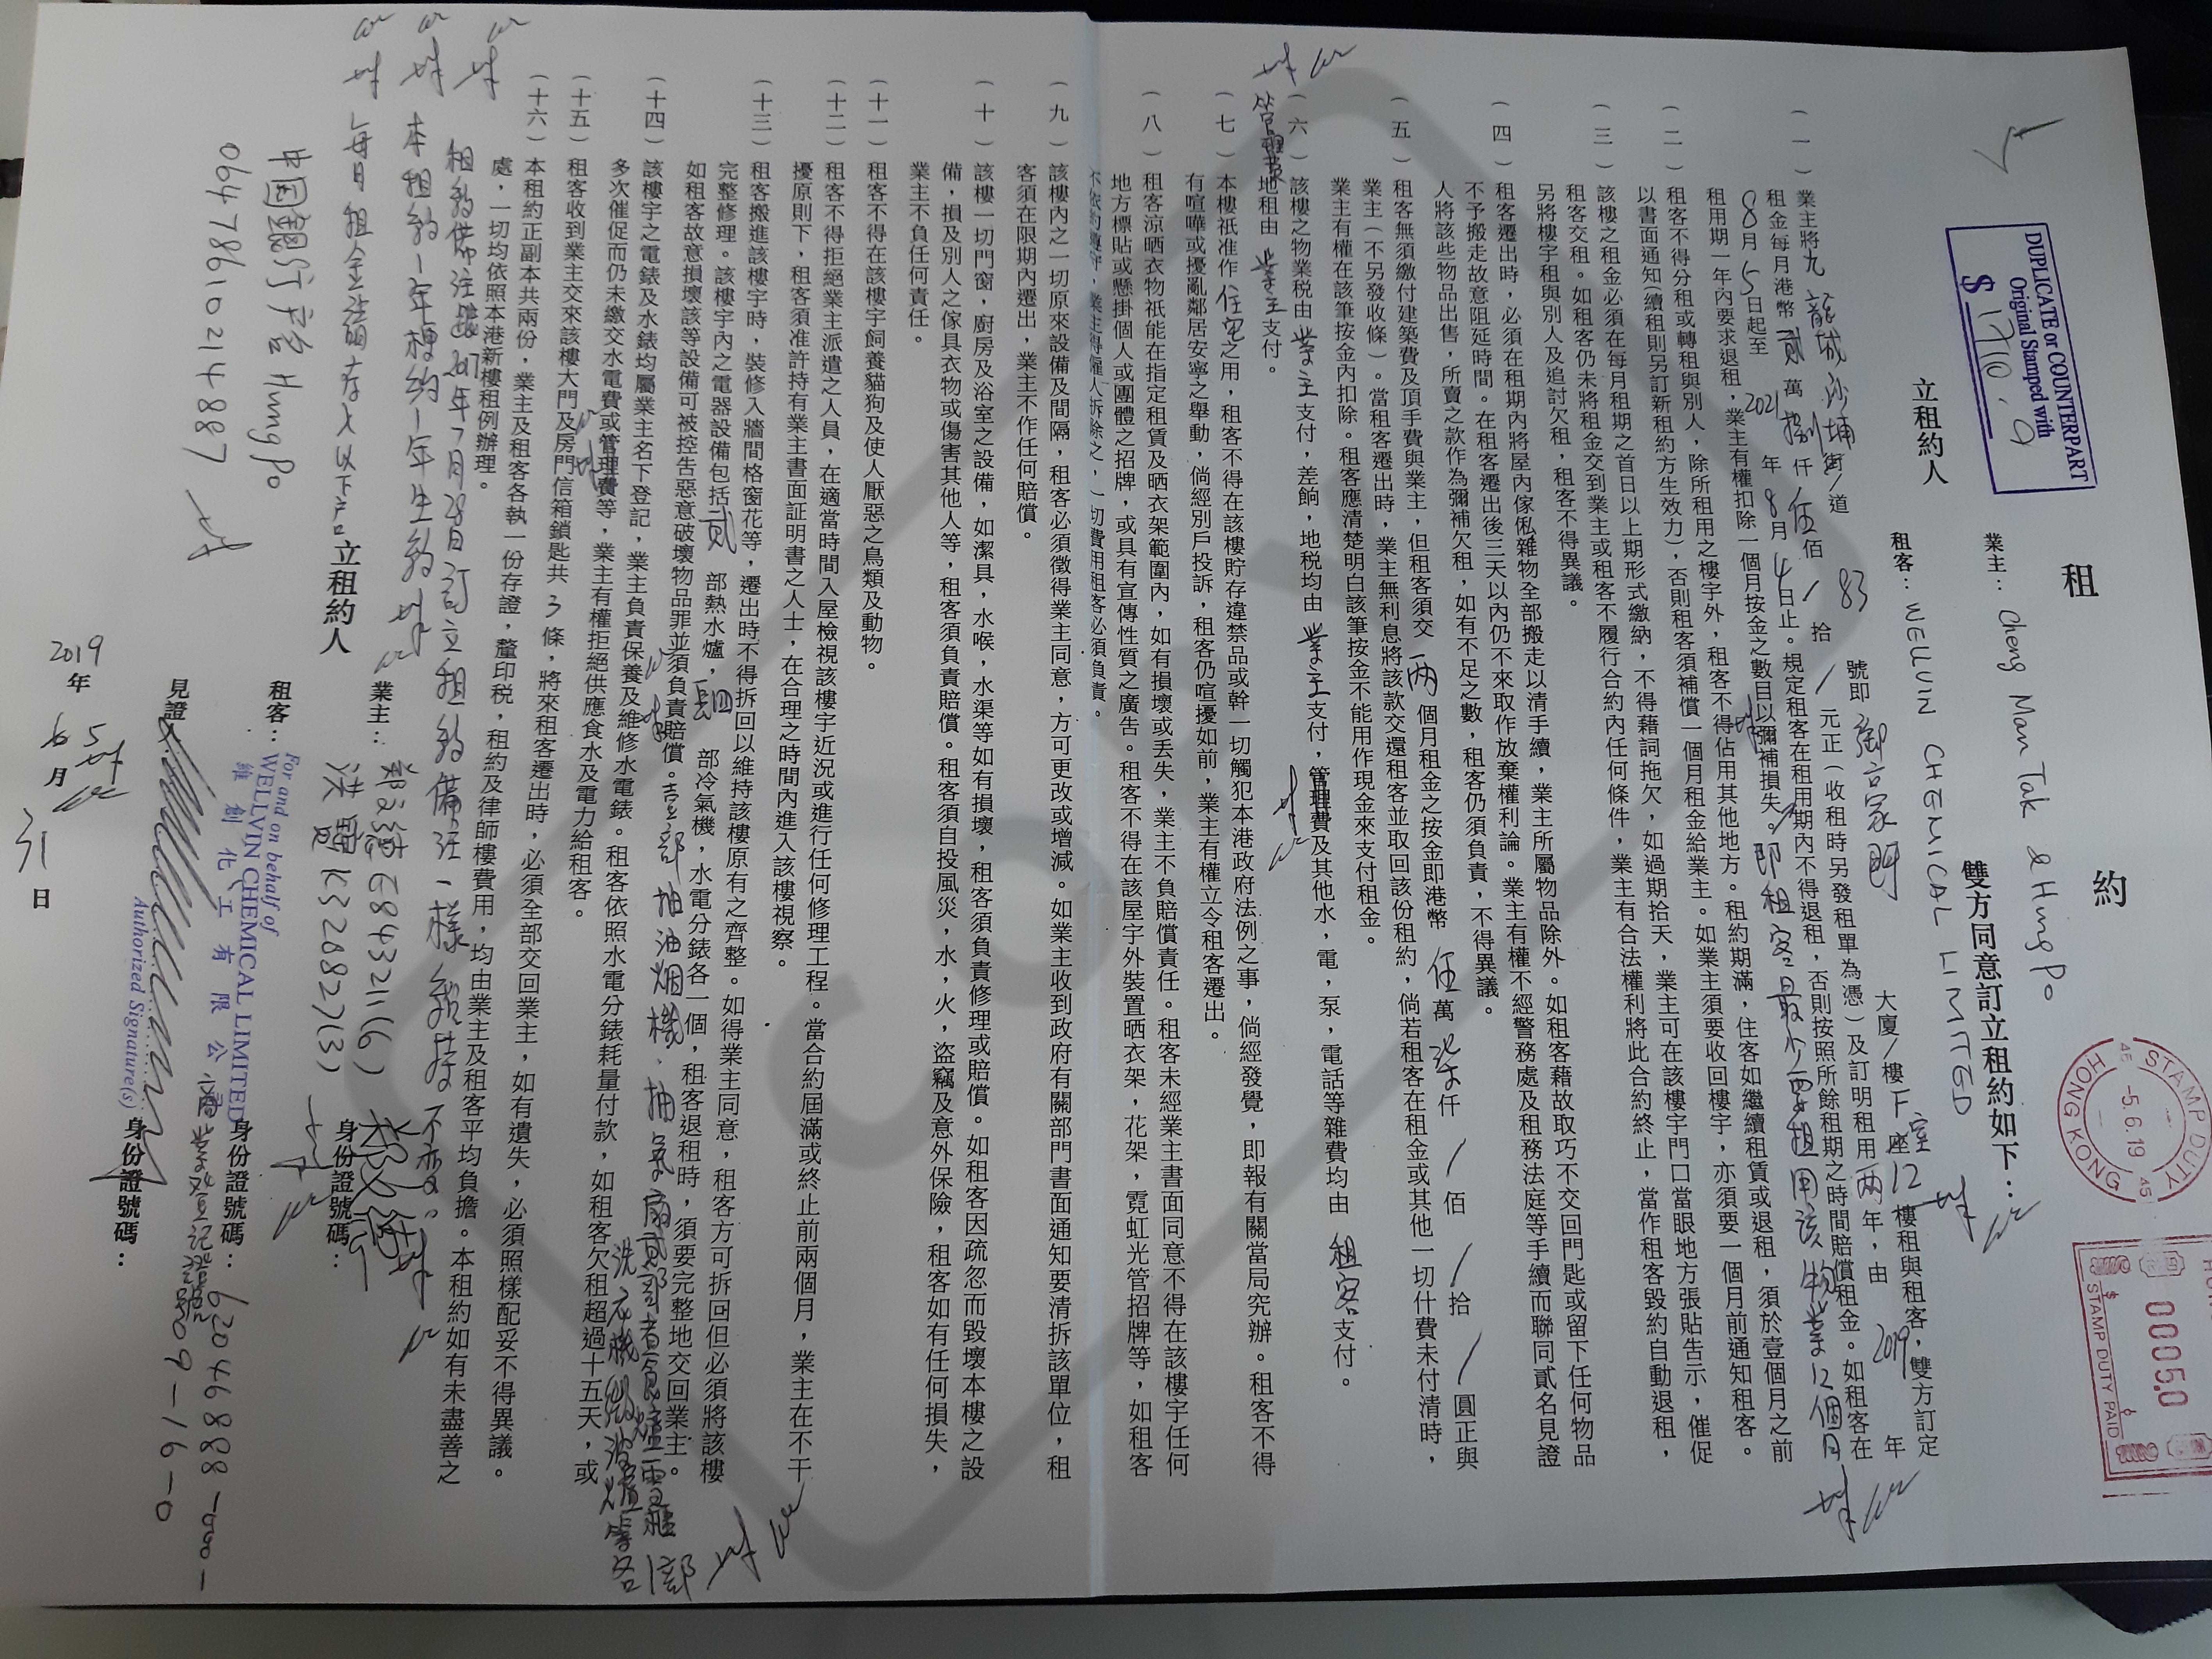 租約
DUPLICATE or COUNTERPART
Original Stamped with
$ 1710.0
STAMP DUTY
HONG KONG
-5.6.19
45
45
00050
STAMP DUTY PAID
立租約人
業主：Cheng Man Tak & Hung Po
租客：WELLVIN CHEMICAL LIMITED
雙方同意訂立租約如下：
（一）業主將九龍城沙埔街/道 83 號即御豪門 大廈/樓F室座12樓租與租客，雙方訂定
租金每月港幣貳萬捌仟伍佰/拾/元正（收租時另發租單為憑）及訂明租用兩年，由2019年
8月5日起至2021年8月4日止。規定租客在租用期內不得退租，否則按照所餘租期之時間賠償租金。如租客在
租用期一年內要求退租，業主有權扣除一個月按金之數目以彌補損失。即租客最少要租用該物業12個月
（二）租客不得分租或轉租與別人，除所租用之樓宇外，租客不得佔用其他地方。租約期滿，住客如繼續租賃或退租，須於壹個月之前
以書面通知（續租則另訂新租約方生效力），否則租客須補償一個月租金給業主。如業主須要收回樓宇，亦須要一個月前通知租客。
（三）該樓之租金必須在每月租期之首日以上期形式繳納，不得藉詞拖欠，如過期拾天，業主可在該樓宇門口當眼地方張貼告示，催促
租客交租。如租客仍未將租金交到業主或租客不履行合約內任何條件，業主有合法權利將此合約終止，當作租客毀約自動退租，
另將樓宇租與別人及追討欠租，租客不得異議。
（四）租客遷出時，必須在租期內將屋內傢俬雜物全部搬走以清手續，業主所屬物品除外。如租客藉故取巧不交回門匙或留下任何物品
不予搬走故意阻延時間。在租客遷出後三天以內仍不來取作放棄權利論。業主有權不經警務處及租務法庭等手續而聯同貳名見證
人將該些物品出售，所賣之款作為彌補欠租，如有不足之數，租客仍須負責，不得異議。
（五）租客無須繳付建築費及頂手費與業主，但租客須交兩個月租金之按金即港幣伍萬柒仟/佰/拾/圓正與
業主（不另發收條）。當租客遷出時，業主無利息將該款交還租客並取回該份租約，倘若租客在租金或其他一切什費未付清時，
業主有權在該筆按金內扣除。租客應清楚明白該筆按金不能用作現金來支付租金。
（六）該樓之物業稅由業主支付，差餉，地稅均由業主支付，管理費及其他水，電，泵，電話等雜費均由租客支付。
管理費
地租由業主支付。
（七）本樓祇准作住宅之用，租客不得在該樓貯存違禁品或幹一切觸犯本港政府法例之事，倘經發覺，即報有關當局究辦。租客不得
有喧嘩或擾亂鄰居安寧之舉動，倘經別戶投訴，租客仍喧擾如前，業主有權立令租客遷出。
（八）租客涼晒衣物祇能在指定租賃及晒衣架範圍內，如有損壞或丟失，業主不負賠償責任。租客未經業主書面同意不得在該樓宇任何
地方標貼或懸掛個人或團體之招牌，或具有宣傳性質之廣告。租客不得在該屋宇外裝置晒衣架，花架，霓虹光管招牌等，如租客
不依約遵守，業主得僱人拆除之，一切費用租客必須負責。
（九）該樓內之一切原來設備及間隔，租客必須徵得業主同意，方可更改或增減。如業主收到政府有關部門書面通知要清拆該單位，租
客須在限期內遷出，業主不作任何賠償。
（十）該樓一切門窗，廚房及浴室之設備，如潔具，水喉，水渠等如有損壞，租客須負責修理或賠償。如租客因疏忽而毀壞本樓之設
備，損及別人之傢具衣物或傷害其他人等，租客須負責賠償。租客須自投風災，水，火，盜竊及意外保險，租客如有任何損失，
業主不負任何責任。
（十一）租客不得在該樓宇飼養貓狗及使人厭惡之鳥類及動物。
（十二）租客不得拒絕業主派遣之人員，在適當時間入屋檢視該樓宇近況或進行任何修理工程。當合約屆滿或終止前兩個月，業主在不干
擾原則下，租客須准許持有業主書面証明書之人士，在合理之時間內進入該樓視察。
（十三）租客搬進該樓宇時，裝修入牆間格窗花等，遷出時不得拆回以維持該樓原有之齊整。如得業主同意，租客方可拆回但必須將該樓
完整修理。該樓宇內之電器設備包括貳部熱水爐，四部冷氣機，水電分錶各一個，租客退租時，須要完整地交回業主。
如租客故意損壞該等設備可被控告惡意破壞物品罪並須負責賠償。壹部抽油烟機、抽氣扇貳部煮食爐雪櫃1部
洗衣機微波爐等各
（十四）該樓宇之電錶及水錶均屬業主名下登記，業主負責保養及維修水電錶。租客依照水電分錶耗量付款，如租客欠租超過十五天，或
多次催促而仍未繳交水電費或管理費等，業主有權拒絕供應食水及電力給租客。
（十五）租客收到業主交來該樓大門及房門信箱鎖匙共3條，將來租客遷出時，必須全部交回業主，如有遺失，必須照樣配妥不得異議。
（十六）本租約正副本共兩份，業主及租客各執一份存證，釐印稅，租約及律師樓費用，均由業主及租客平均負擔。本租約如有未盡善之
處，一切均依照本港新樓租例辦理。
租約備注跟2017年7月28日訂立租約備注一樣維持不變。
本租約1年梗約1年生約
每月租金請存入以下戶口
中国銀行户口 Hung Po
06478610214887
立租約人
業主：鄭文德 E843211(6) 身份證號碼：
洪 K328827(3)
租客：
For and on behalf of
WELLVIN CHEMICAL LIMITED
維創化工有限公司
Authorized Signature(s)
身份證號碼：62046888-000-
商業登記證號 09-16-0
見證人：
身份證號碼：
2019年5 6月31日
COPY